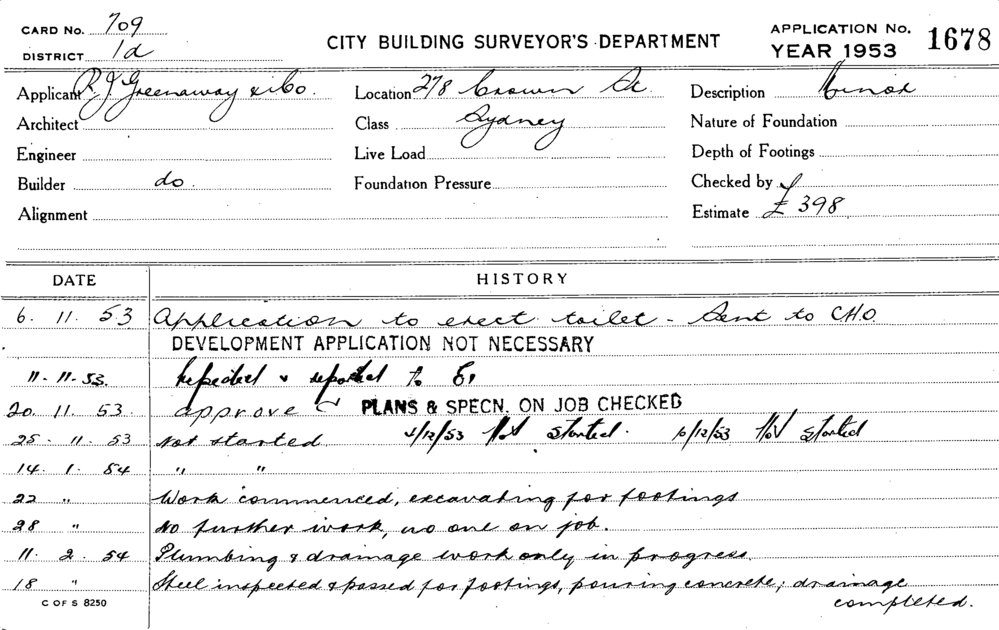 CARD No. 709
DISTRICT 1d
CITY BUILDING SURVEYOR'S DEPARTMENT
APPLICATION No.
YEAR 1953
1678
Applicant R. J. Greenaway & Co.
Location 278 Crown St.
Description Minor
Architect
Class Sydney
Nature of Foundation
Engineer
Live Load
Depth of Footings
Builder do.
Foundation Pressure
Checked by
Alignment
Estimate £ 398
DATE
HISTORY
6. 11. 53 Application to erect toilet - Sent to C.H.O.
DEVELOPMENT APPLICATION NOT NECESSARY
11-11-53. Inspected & reported to
20. 11. 53. approve PLANS & SPECN. ON JOB CHECKED
25. 11. 53 Not started. 4/12/53 Not started. 10/12/53 Not started
14. 1. 54 " "
22 " Work commenced, excavating for footings
28 " No further work, no one on job.
11. 2. 54 Plumbing & drainage work only in progress.
18 " Steel inspected & passed for footings, pouring concrete; drainage
completed.
C OF S 8250